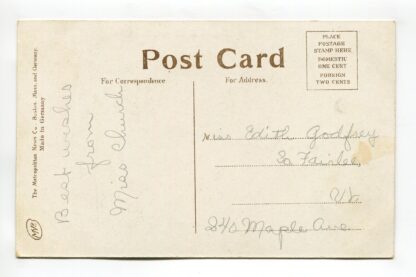 Post Card
For Correspondence
For Address.
PLACE
POSTAGE
STAMP HERE
DOMESTIC
ONE CENT
FOREIGN
TWO CENTS
The Metropolitan News Co. Boston, Mass. and Germany.
Made in Germany
Best wishes
from
Miss Church
Miss Edith Godfrey
So Fairlee,
Vt.
Maple Ave